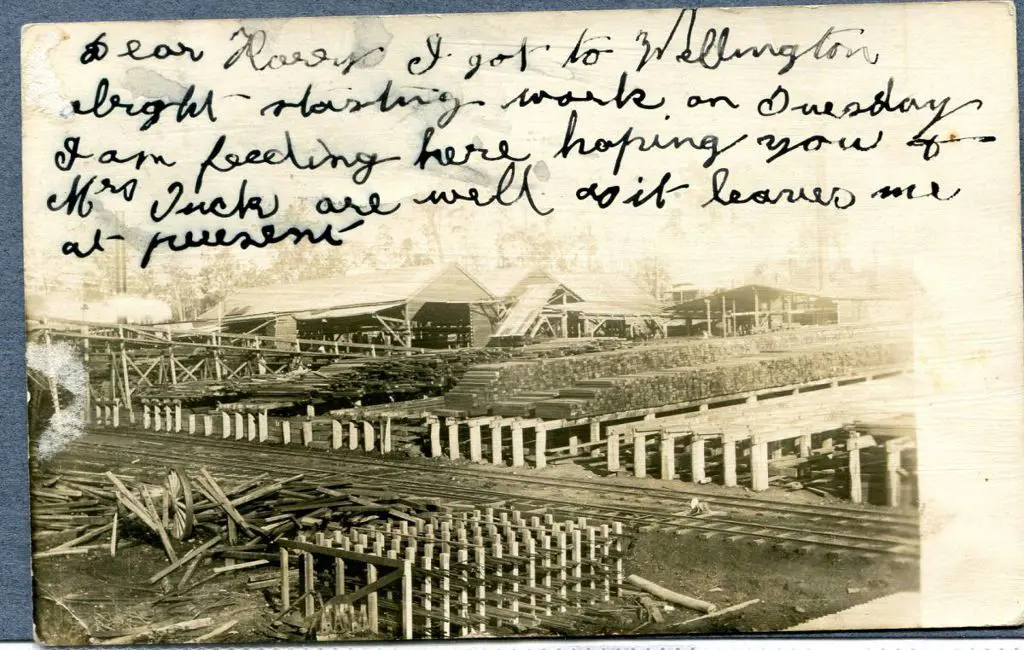 Dear Harry I got to Wellington
alright starting work on Tuesday
I am feeding here hoping you &
Mrs Tuck are well as it leaves me
at present